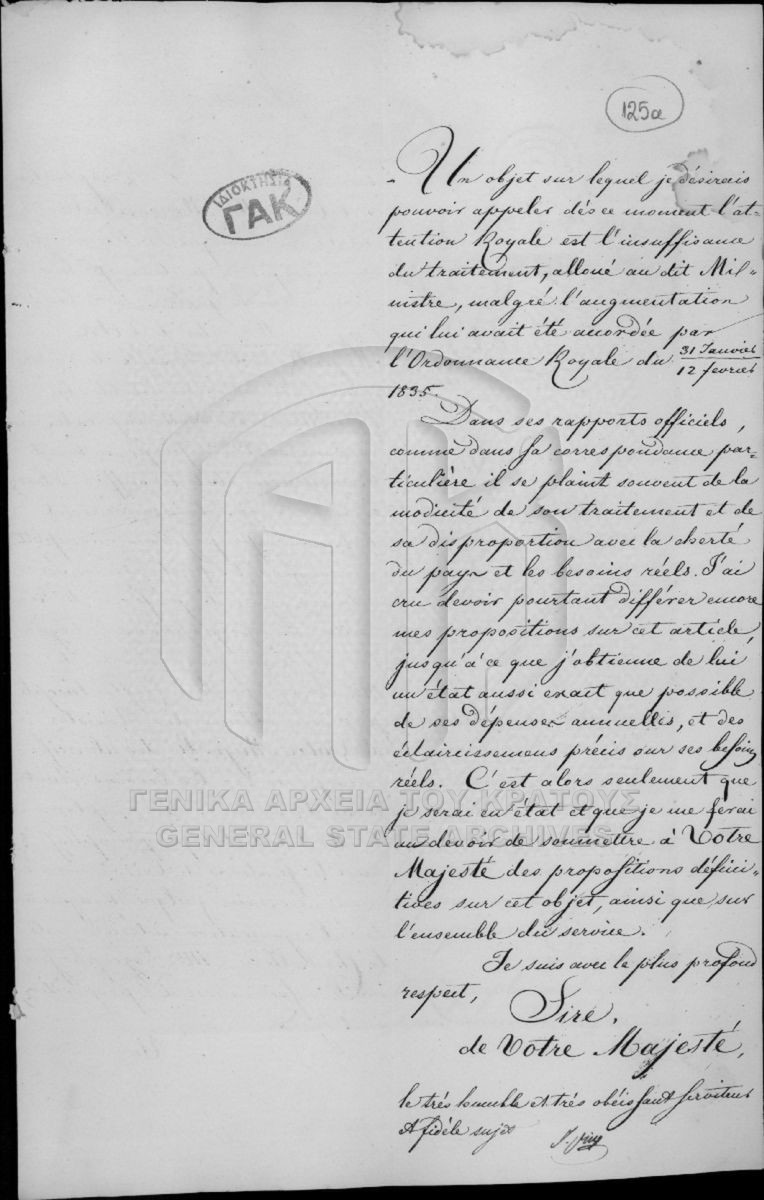 125a
ΙΔΙΟΚΤΗΣΙΑ
ΓΑΚ
- Un objet sur lequel je désirais
pouvoir appeler dès ce moment l'at=
tention Royale est l'insuffisance
du traitement, alloué au dit Mi=
nistre, malgré l'augmentation
qui lui avait été accordée par
l'Ordonnance Royale du 31 Janvier
12 fevrier
1835.
Dans ses rapports officiels,
comme dans sa correspondance par=
ticulière il se plaint souvent de la
modicité de son traitement et de
sa disproportion avec la cherté
du pays et les besoins réels. J'ai
cru devoir pourtant différer encore
mes propositions sur cet article,
jusqu'à ce que j'obtienne de lui
un état aussi exact que possible
de ses dépenses annuelles, et des
éclaircissemens précis sur ses besoins
réels. C'est alors seulement que
je serai en état et que je me ferai
un devoir de soumettre à Votre
Majesté des propositions défini=
tives sur cet objet, ainsi que sur
l'ensemble du service.
Je suis avec le plus profond
respect,
Sire,
de Votre Majesté,
le très humble et très obéissant serviteur
et fidèle sujet
ΓΕΝΙΚΑ ΑΡΧΕΙΑ ΤΟΥ ΚΡΑΤΟΥΣ
GENERAL STATE ARCHIVES